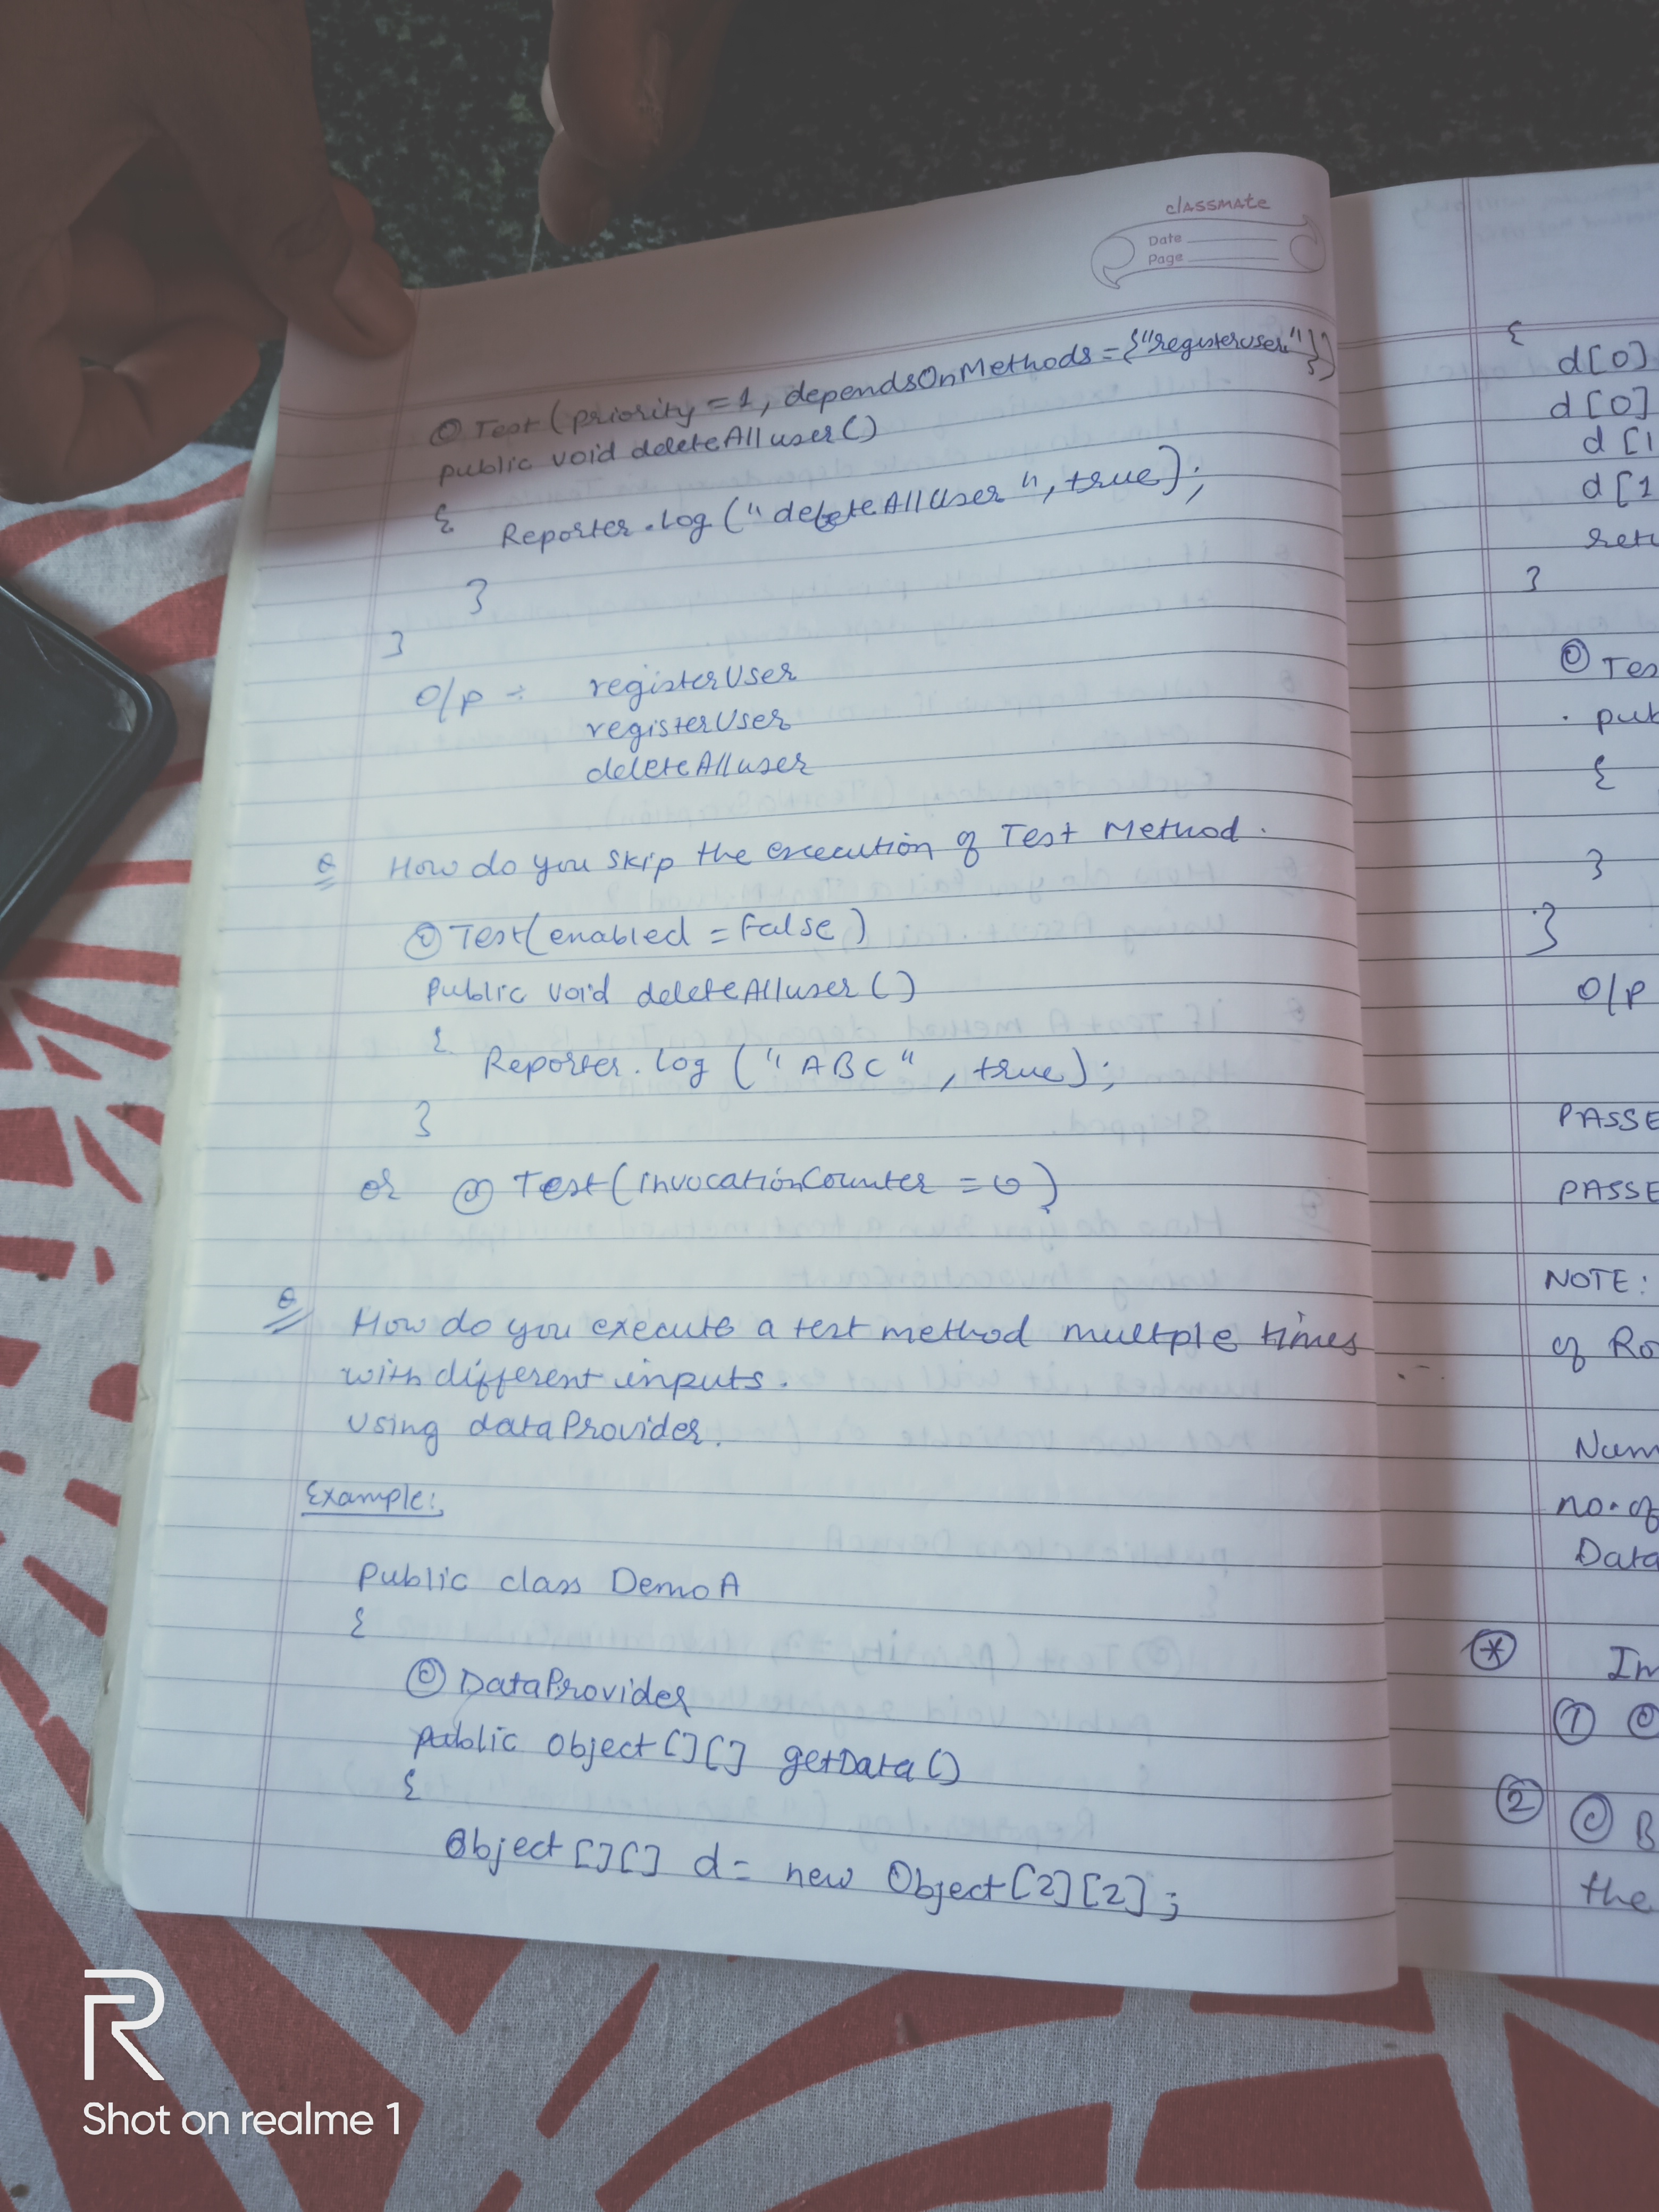 classmate
Date
Page
@Test(priority=1, dependsOnMethods={"registeruser"})
public void deleteAlluser()
{
Reporter.log("deleteAlluser", true);
}
}
O/p ÷ registerUser
registerUser
deleteAlluser
Q How do you skip the execution of Test Method.
@Test(enabled = False)
Public void deleteAlluser()
{
Reporter.log ("ABC", true);
}
or @Test(invocationCounter = 0)
Q How do you execute a test method multple times
with different inputs.
Using dataProvider.
Example:
Public class DemoA
{
@DataProvider
public object[][] getData()
{
Object[][] d = new Object[2][2];
{
d[0]
d[0]
d[1
d[1
retu
}
@Tes
pub
{
}
}
O/p
PASSE
PASSE
NOTE:
of Ro
Num
no. of
Data
* Im
1 @
2 @B
the
R
Shot on realme 1